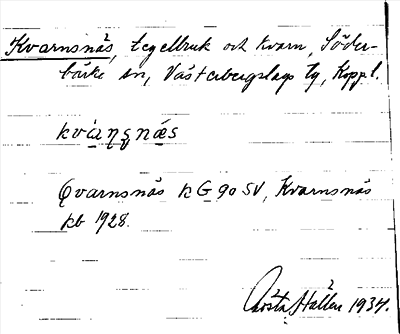 Kvarnsnäs, tegelbruk och kvarn, Söder-
bärke sn, Västerbergslags tg, Koppl.
kvàṇṣnæs
Qvarnsnäs k G 90 SV, Kvarnsnäs
kb 1928.
Gösta Hallén 1937.